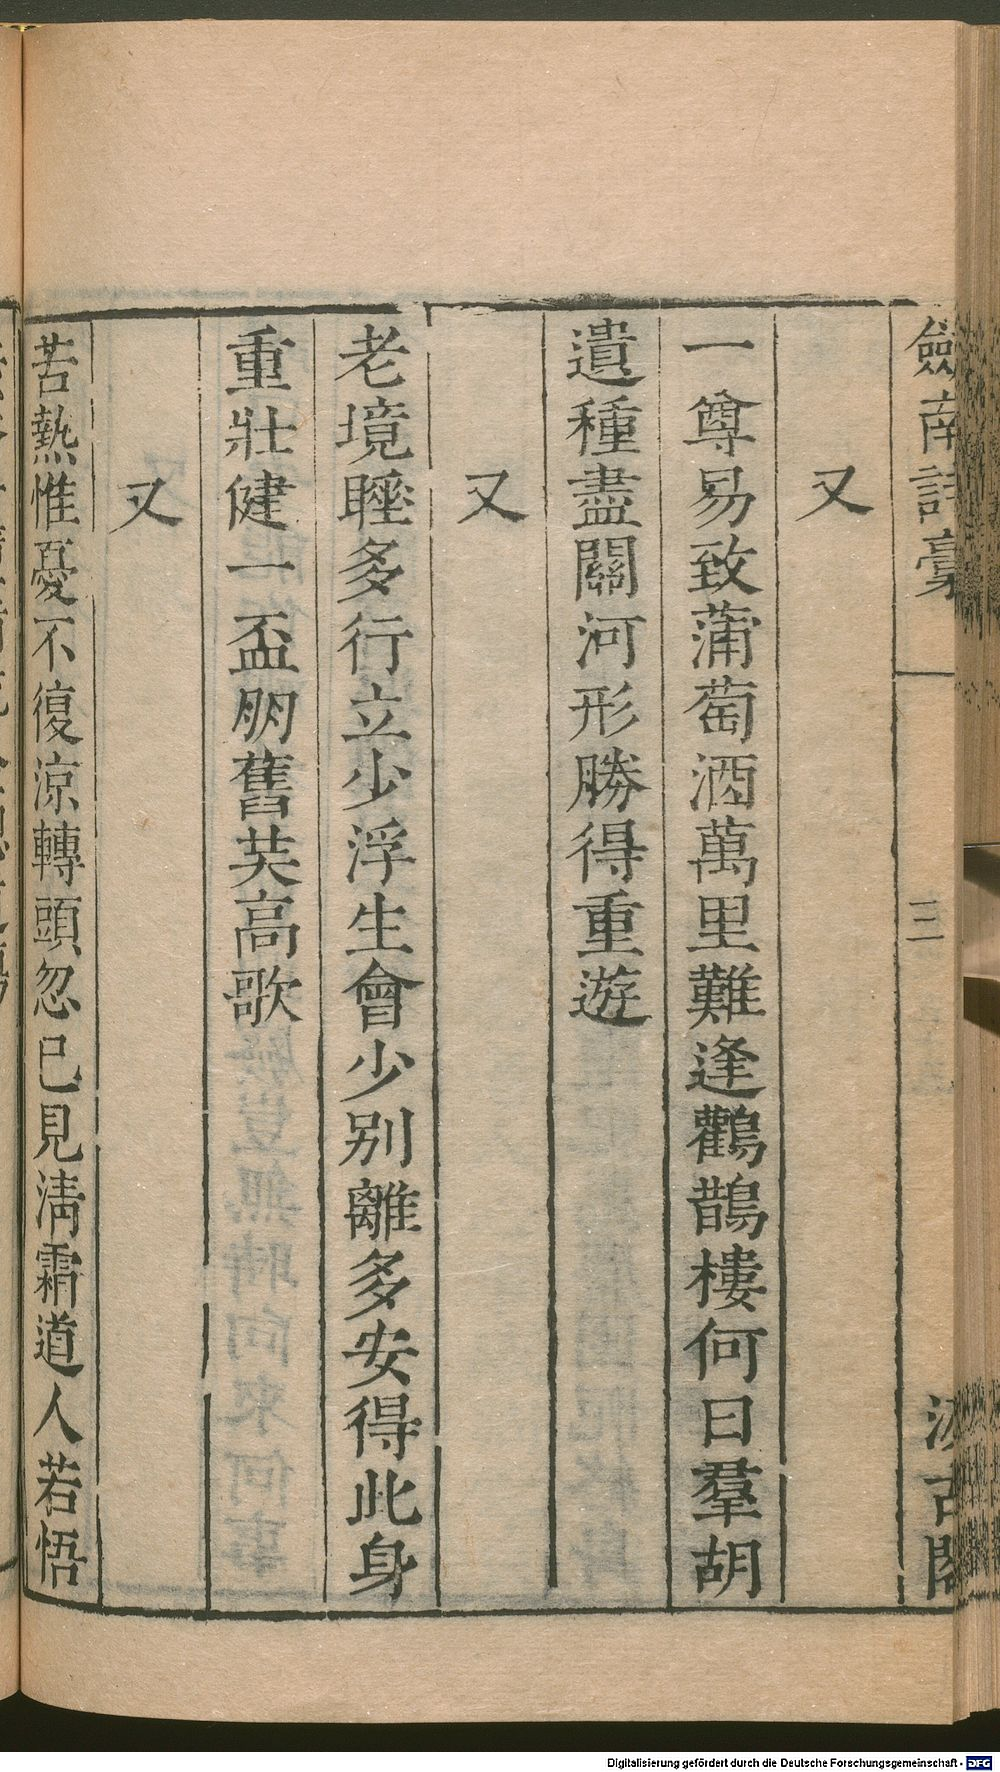 劔南詩稾 三 汲古閣
又
一尊易致蒲萄酒萬里難逢鸛鵲樓何日羣胡
遺種盡關河形勝得重遊
又
老境睡多行立少浮生會少別離多安得此身
重壯健一盃朋舊共高歌
又
苦熱惟憂不復涼轉頭忽已見清霜道人若悟
Digitalisierung gefördert durch die Deutsche Forschungsgemeinschaft - DFG